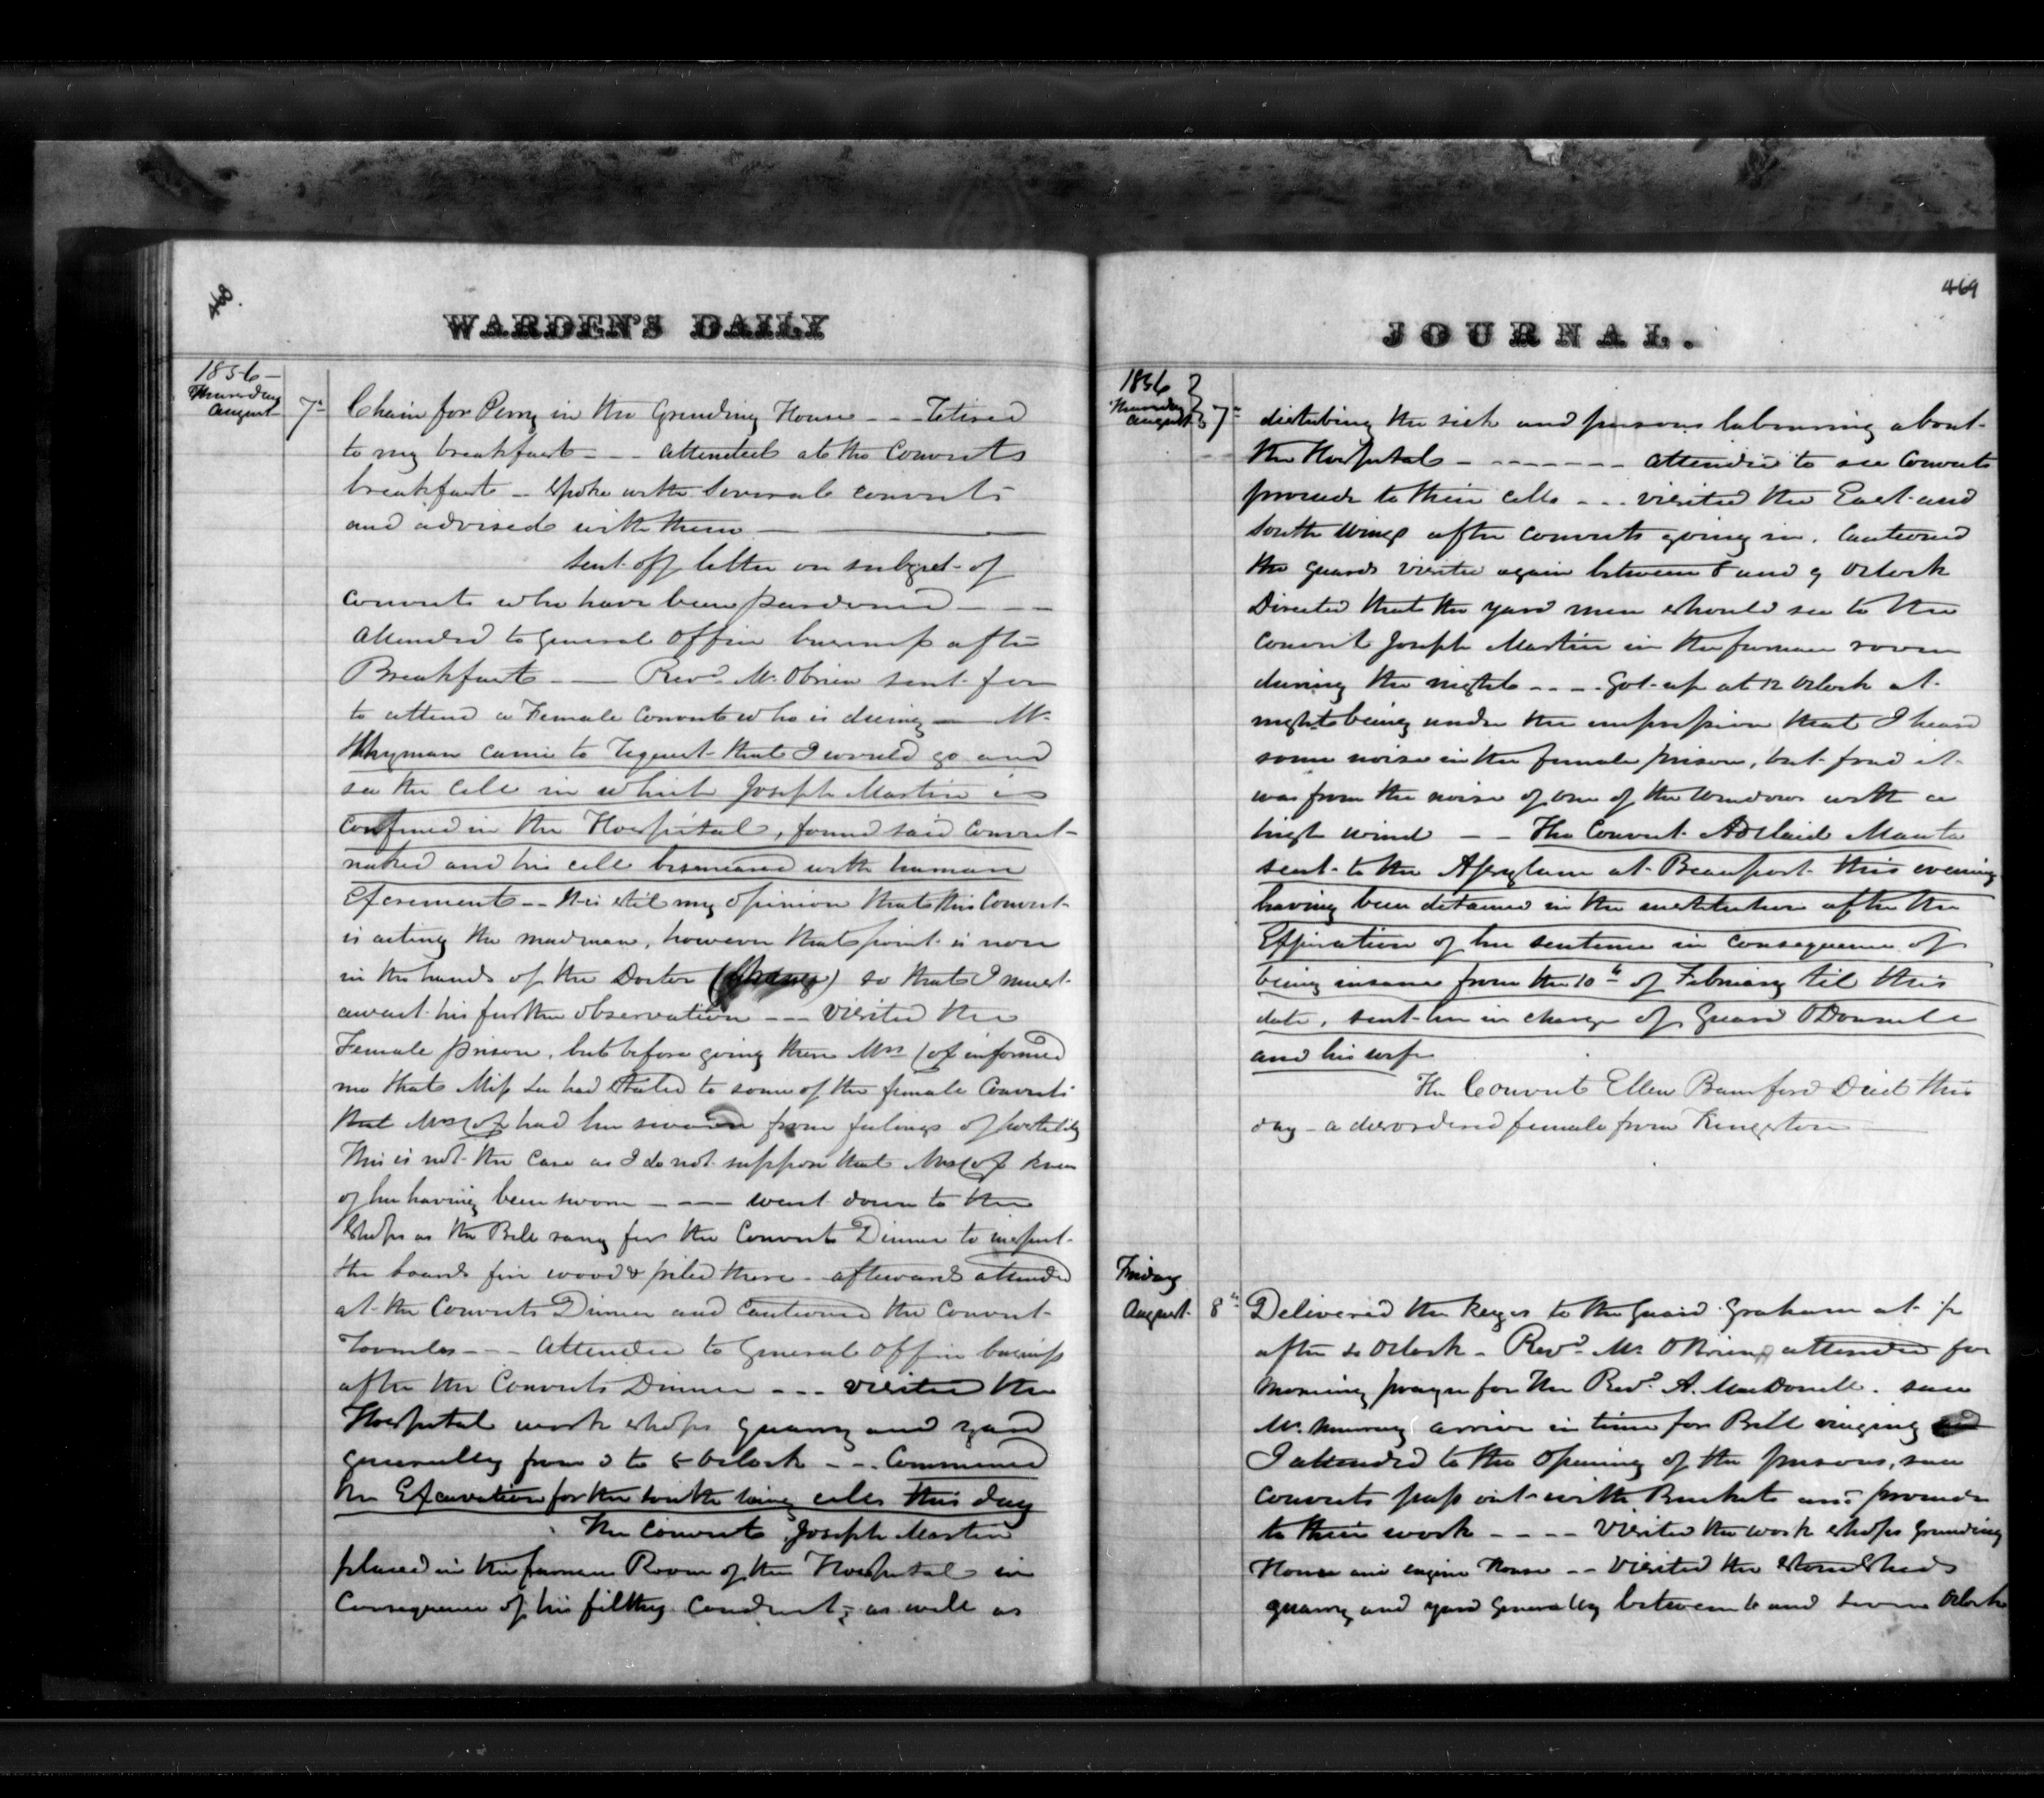 468.
WARDEN'S DAILY
1856
Thursday
August 7th
Chain for Perry in the Grinding House - - Retired
to my breakfast - - - attended at the Convicts
breakfast - spoke with Several convicts
and advised with them
Sent off letter on subject of
Convicts who have been pardoned - - -
Attended to General Office business after
Breakfast - - Revd. Mr. Obrien sent for
to attend a Female Convict who is dieing - Mr.
came to request that I would go and
see the cell in which Joseph Martin is
confined in the Hospital, found said Convict
naked and his cell besmeared with human
Excrement - - It is stil my opinion that this Convict
is acting the madman, however that point is now
in the hands of the Doctor so that I must
await his further observation - - - Visited the
Female prison, but before going there Mrs Cox informed
me that Miss Lee had Stated to some of the female Convicts
that Mrs Cox had her sworn from feelings of hostility
This is not the case as I do not suppose that Mrs Cox knew
of her having been sworn - - - went down to the
Shops as the Bell rang for the Convicts Dinner to inspect
the boards fire wood & piled there - afterwards attended
at the Convicts Dinner and Cautioned the Convict
- - - Attended to General Office business
after the Convicts Dinner - - - visited the
Hospital work shops quarry and yard
generally from 3 to 6 Oclock - - Commenced
the Excavation for the South Wing cells this day
The Convict Joseph Martin
placed in the furnace Room of the Hospital in
Consequence of his filthy Conduct, as well as
469
JOURNAL.
1856
Thursday
August 7th
disturbing the sick and persons labouring about
the Hospital - - - - - - - attended to see Convicts
proceed to their cells - - - visited the East and
South Wings after Convicts going in. Cautioned
the guards visited again between 8 and 9 Oclock
Directed that the yard men should see to the
Convict Joseph Martin in the furnace room
during the night - - - - Got up at 12 Oclock at
night being under the impression that I heard
some noise in the female prison, but found it
was from the noise of one of the Windows with a
high wind - - The Convict Adelaide
sent to the Assylum at Beauport this evening
having been detained in the institution after the
Expiration of her sentence in consequence of
being insane from the 10th of February til this
date, sent her in charge of Guard ODonnell
and his wife
The Convict Ellen Bamford Died this
day - a disordered female from Kingston
Friday
August 8th
Delivered the keys to the Guard Graham at 1/2
after 4 Oclock - Revd. Mr. OBrien attended for
morning prayer for the Revd. A. MacDonell. saw
Mr. Murray arrive in time for Bell ringing
I attended to the opening of the prisons, saw
Convicts pass out with Buckets and proceed
to their work - - - - Visited the work shops Grinding
House and engine House - - Visited the Stone Sheds
quarry and yard generally between 6 and Seven Oclock